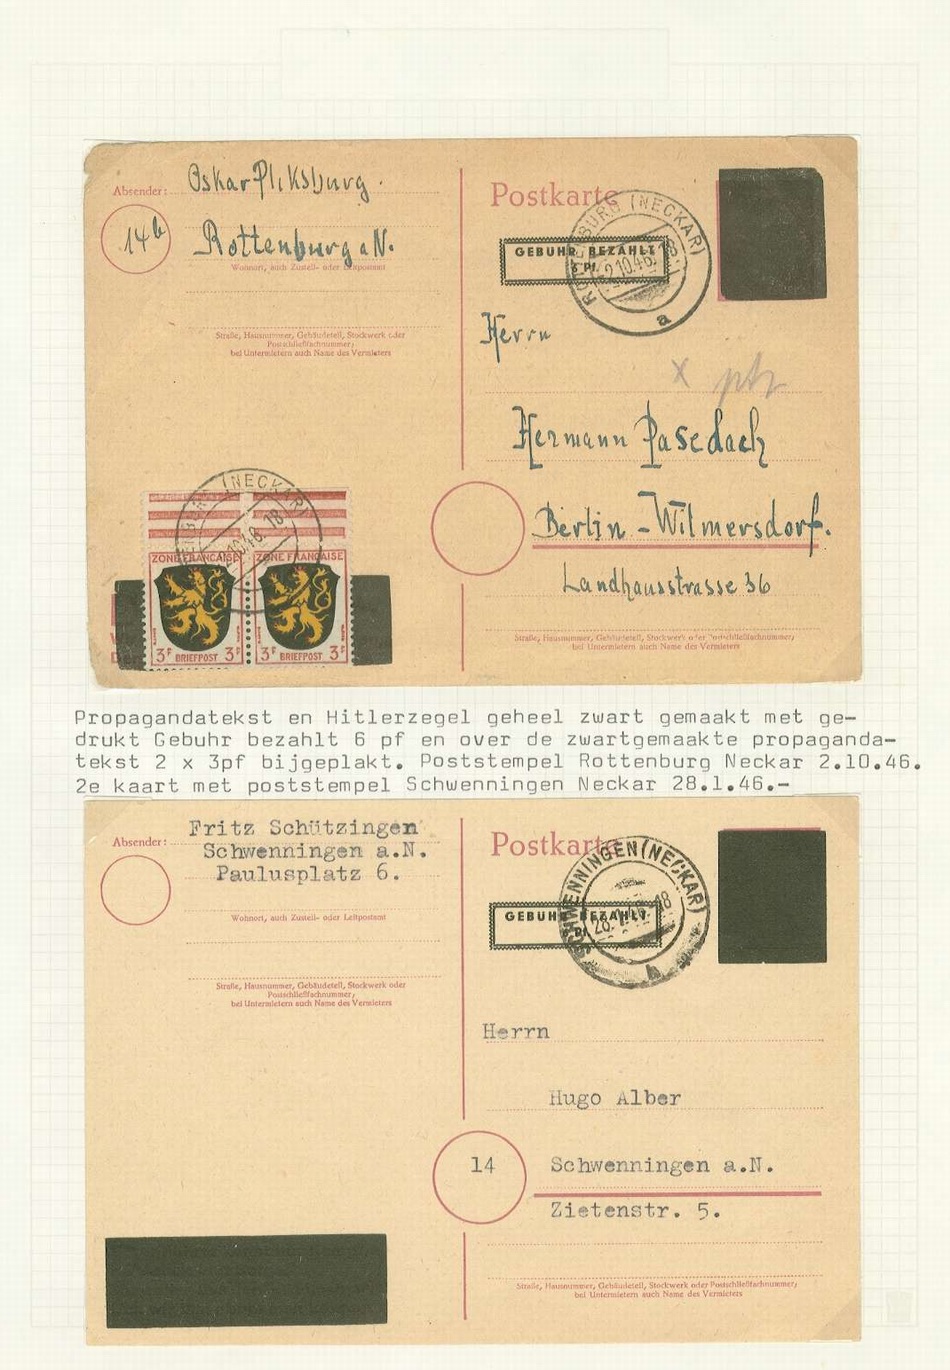 Absender:
Oskar Pliksburg.
14b
Rottenburg a N.
Wohnort, auch Zustell- oder Leitpostamt
Straße, Hausnummer, Gebäudeteil, Stockwerk oder
Postschließfachnummer;
bei Untermietern auch Name des Vermieters
Postkarte
GEBÜHR BEZAHLT
6 Pf
ROTTENBURG (NECKAR)
2.10.46. 18
a
Herrn
x
Hermann Pasedach
Berlin-Wilmersdorf.
Landhausstrasse 36
Straße, Hausnummer, Gebäudeteil, Stockwerk oder Postschließfachnummer;
bei Untermietern auch Name des Vermieters
(NECKAR)
ZONE FRANÇAISE ZONE FRANÇAISE
3F BRIEFPOST 3F 3F BRIEFPOST 3F
Propagandatekst en Hitlerzegel geheel zwart gemaakt met ge-
drukt Gebuhr bezahlt 6 pf en over de zwartgemaakte propaganda-
tekst 2 x 3pf bijgeplakt. Poststempel Rottenburg Neckar 2.10.46.
2e kaart met poststempel Schwenningen Neckar 28.1.46.-
Absender:
Fritz Schützingen
Schwenningen a.N.
Paulusplatz 6.
Wohnort, auch Zustell- oder Leitpostamt
Straße, Hausnummer, Gebäudeteil, Stockwerk oder
Postschließfachnummer;
bei Untermietern auch Name des Vermieters
Postkarte
GEBÜHR BEZAHLT
Pf
SCHWENNINGEN (NECKAR)
28.1.46. 18
b
Herrn
Hugo Alber
14
Schwenningen a.N.
Zietenstr. 5.
Straße, Hausnummer, Gebäudeteil, Stockwerk oder Postschließfachnummer;
bei Untermietern auch Name des Vermieters